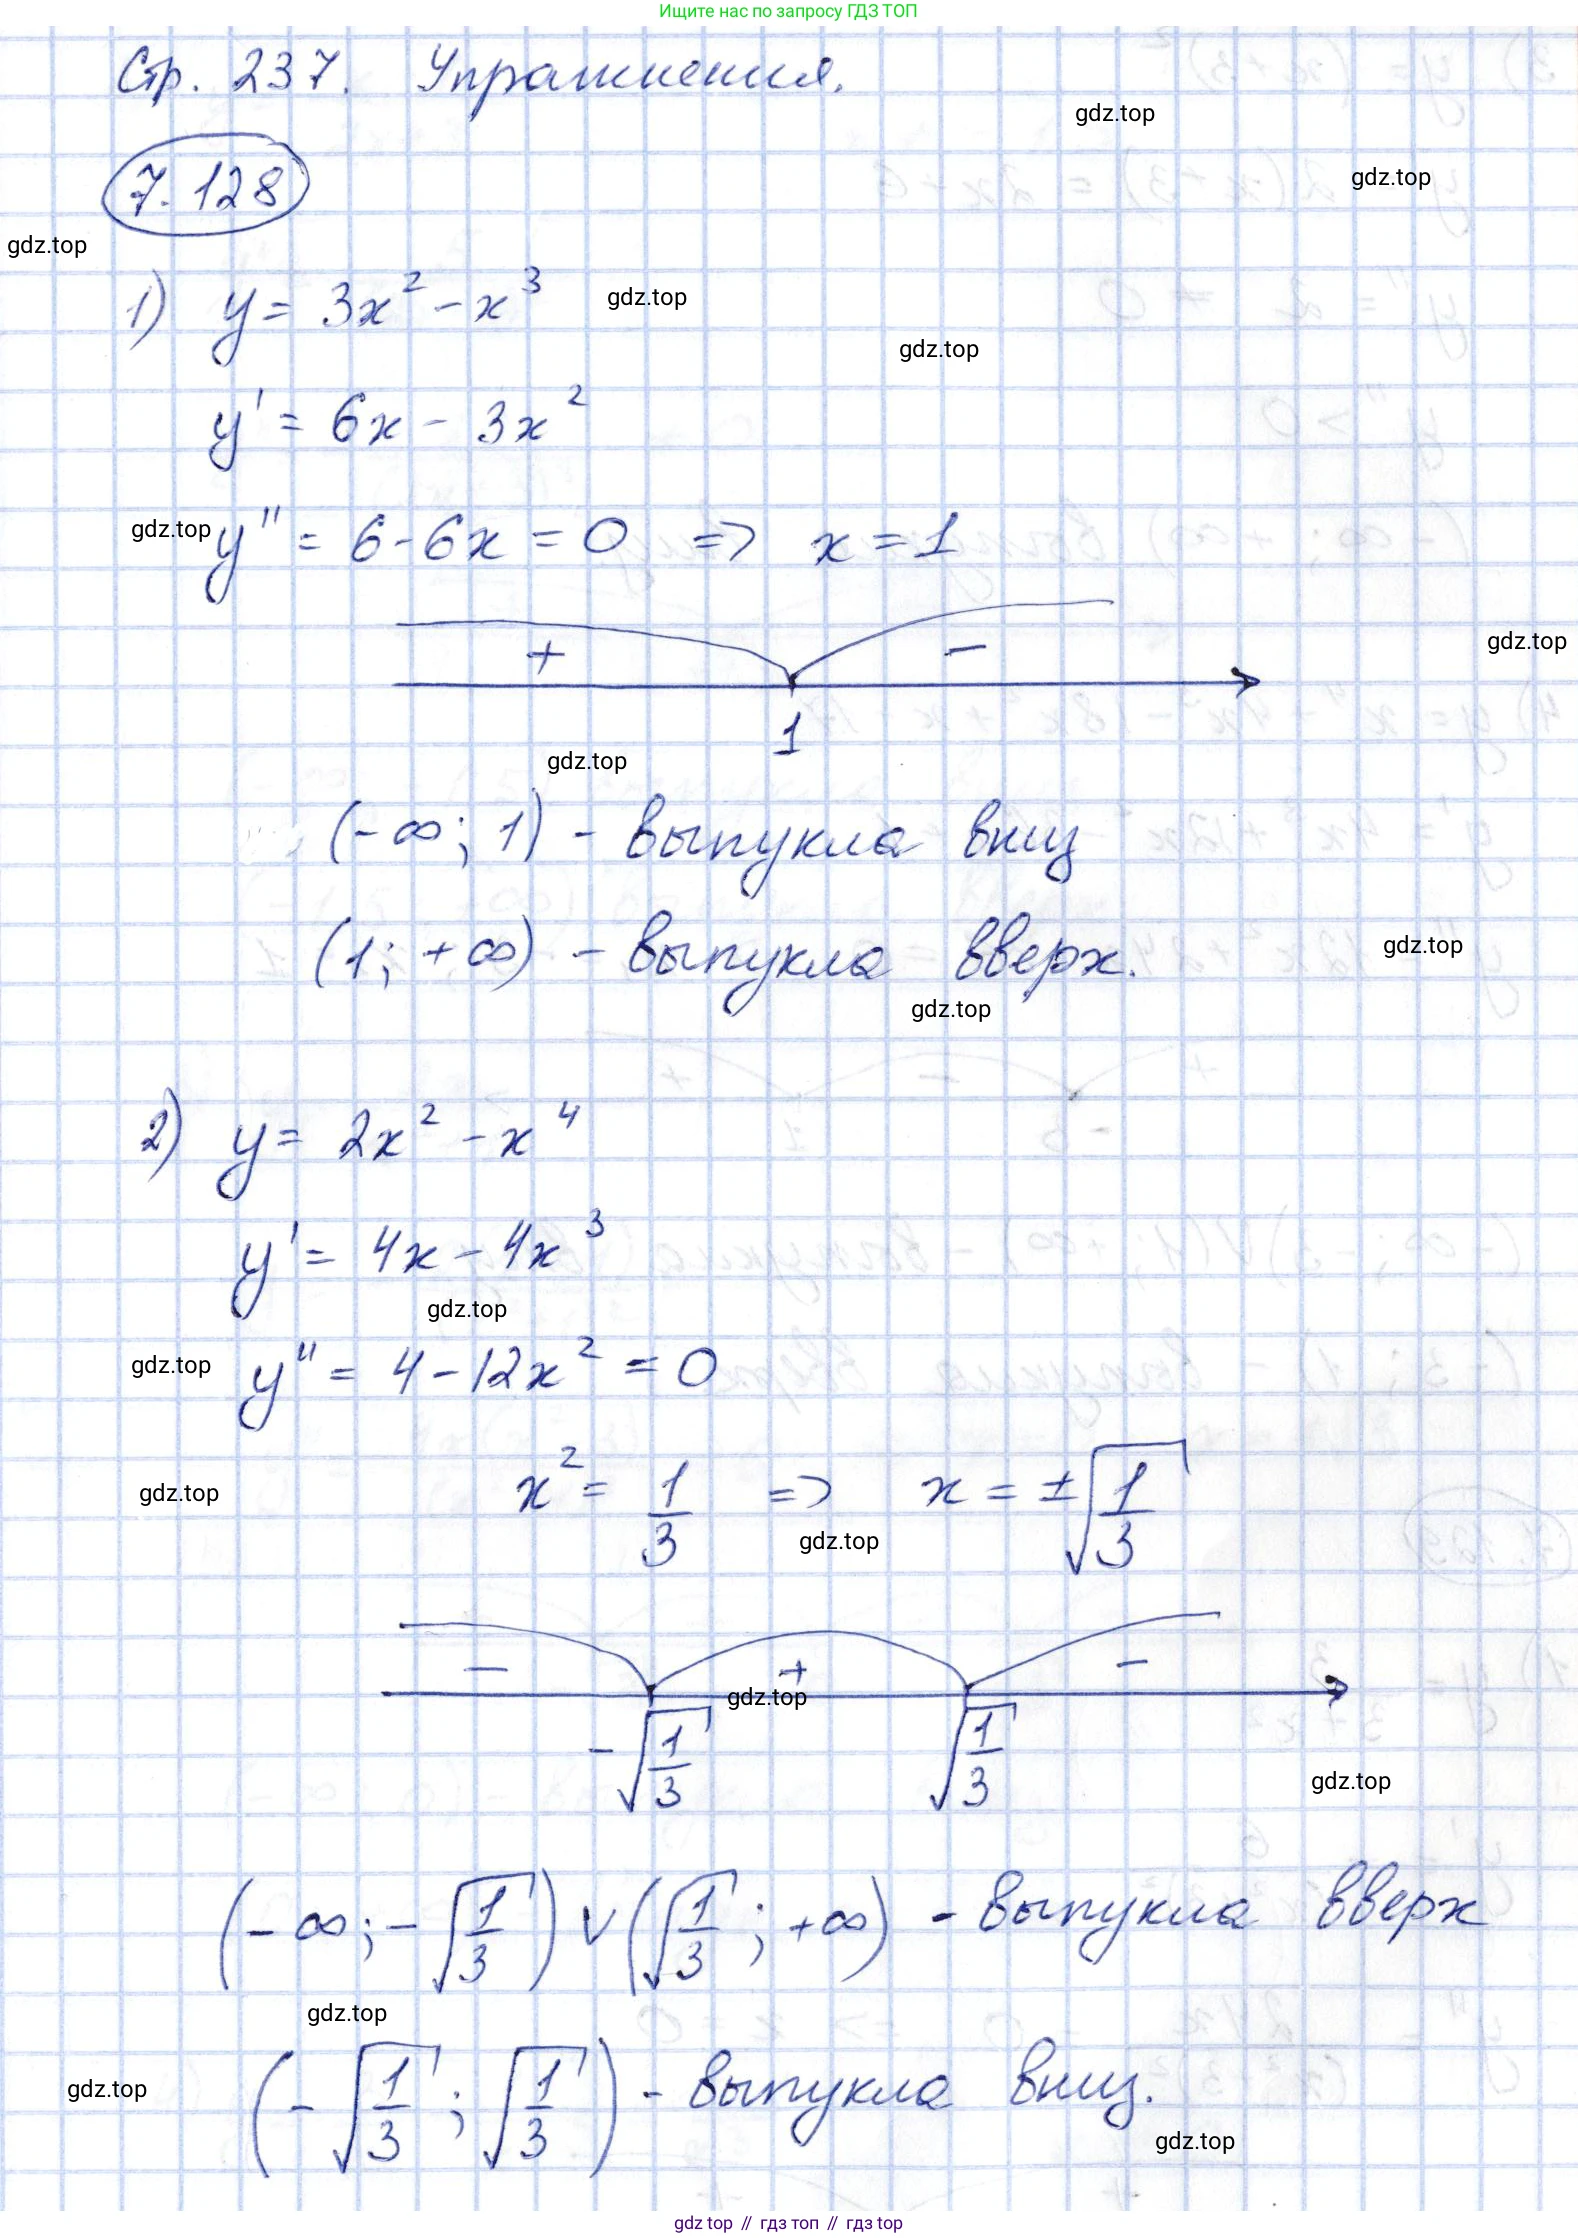 Ищите нас по запросу ГДЗ ТОП
Стр. 237. Упражнения.
gdz.top
7.128
gdz.top
gdz.top
1) y = 3x² - x³
gdz.top
gdz.top
y' = 6x - 3x²
gdz.top
y'' = 6 - 6x = 0 => x = 1
gdz.top
+ -
1
gdz.top
(-∞; 1) - выпукла вниз
(1; +∞) - выпукла вверх.
gdz.top
gdz.top
2) y = 2x² - x⁴
y' = 4x - 4x³
gdz.top
gdz.top
y'' = 4 - 12x² = 0
gdz.top
x² = 1/3 => x = ±√(1/3)
gdz.top
- + -
gdz.top
-√(1/3) √(1/3)
gdz.top
(-∞; -√(1/3)) ∨ (√(1/3); +∞) - выпукла вверх
gdz.top
(-√(1/3); √(1/3)) - выпукла вниз.
gdz.top
gdz.top
gdz top // гдз топ // гдз top